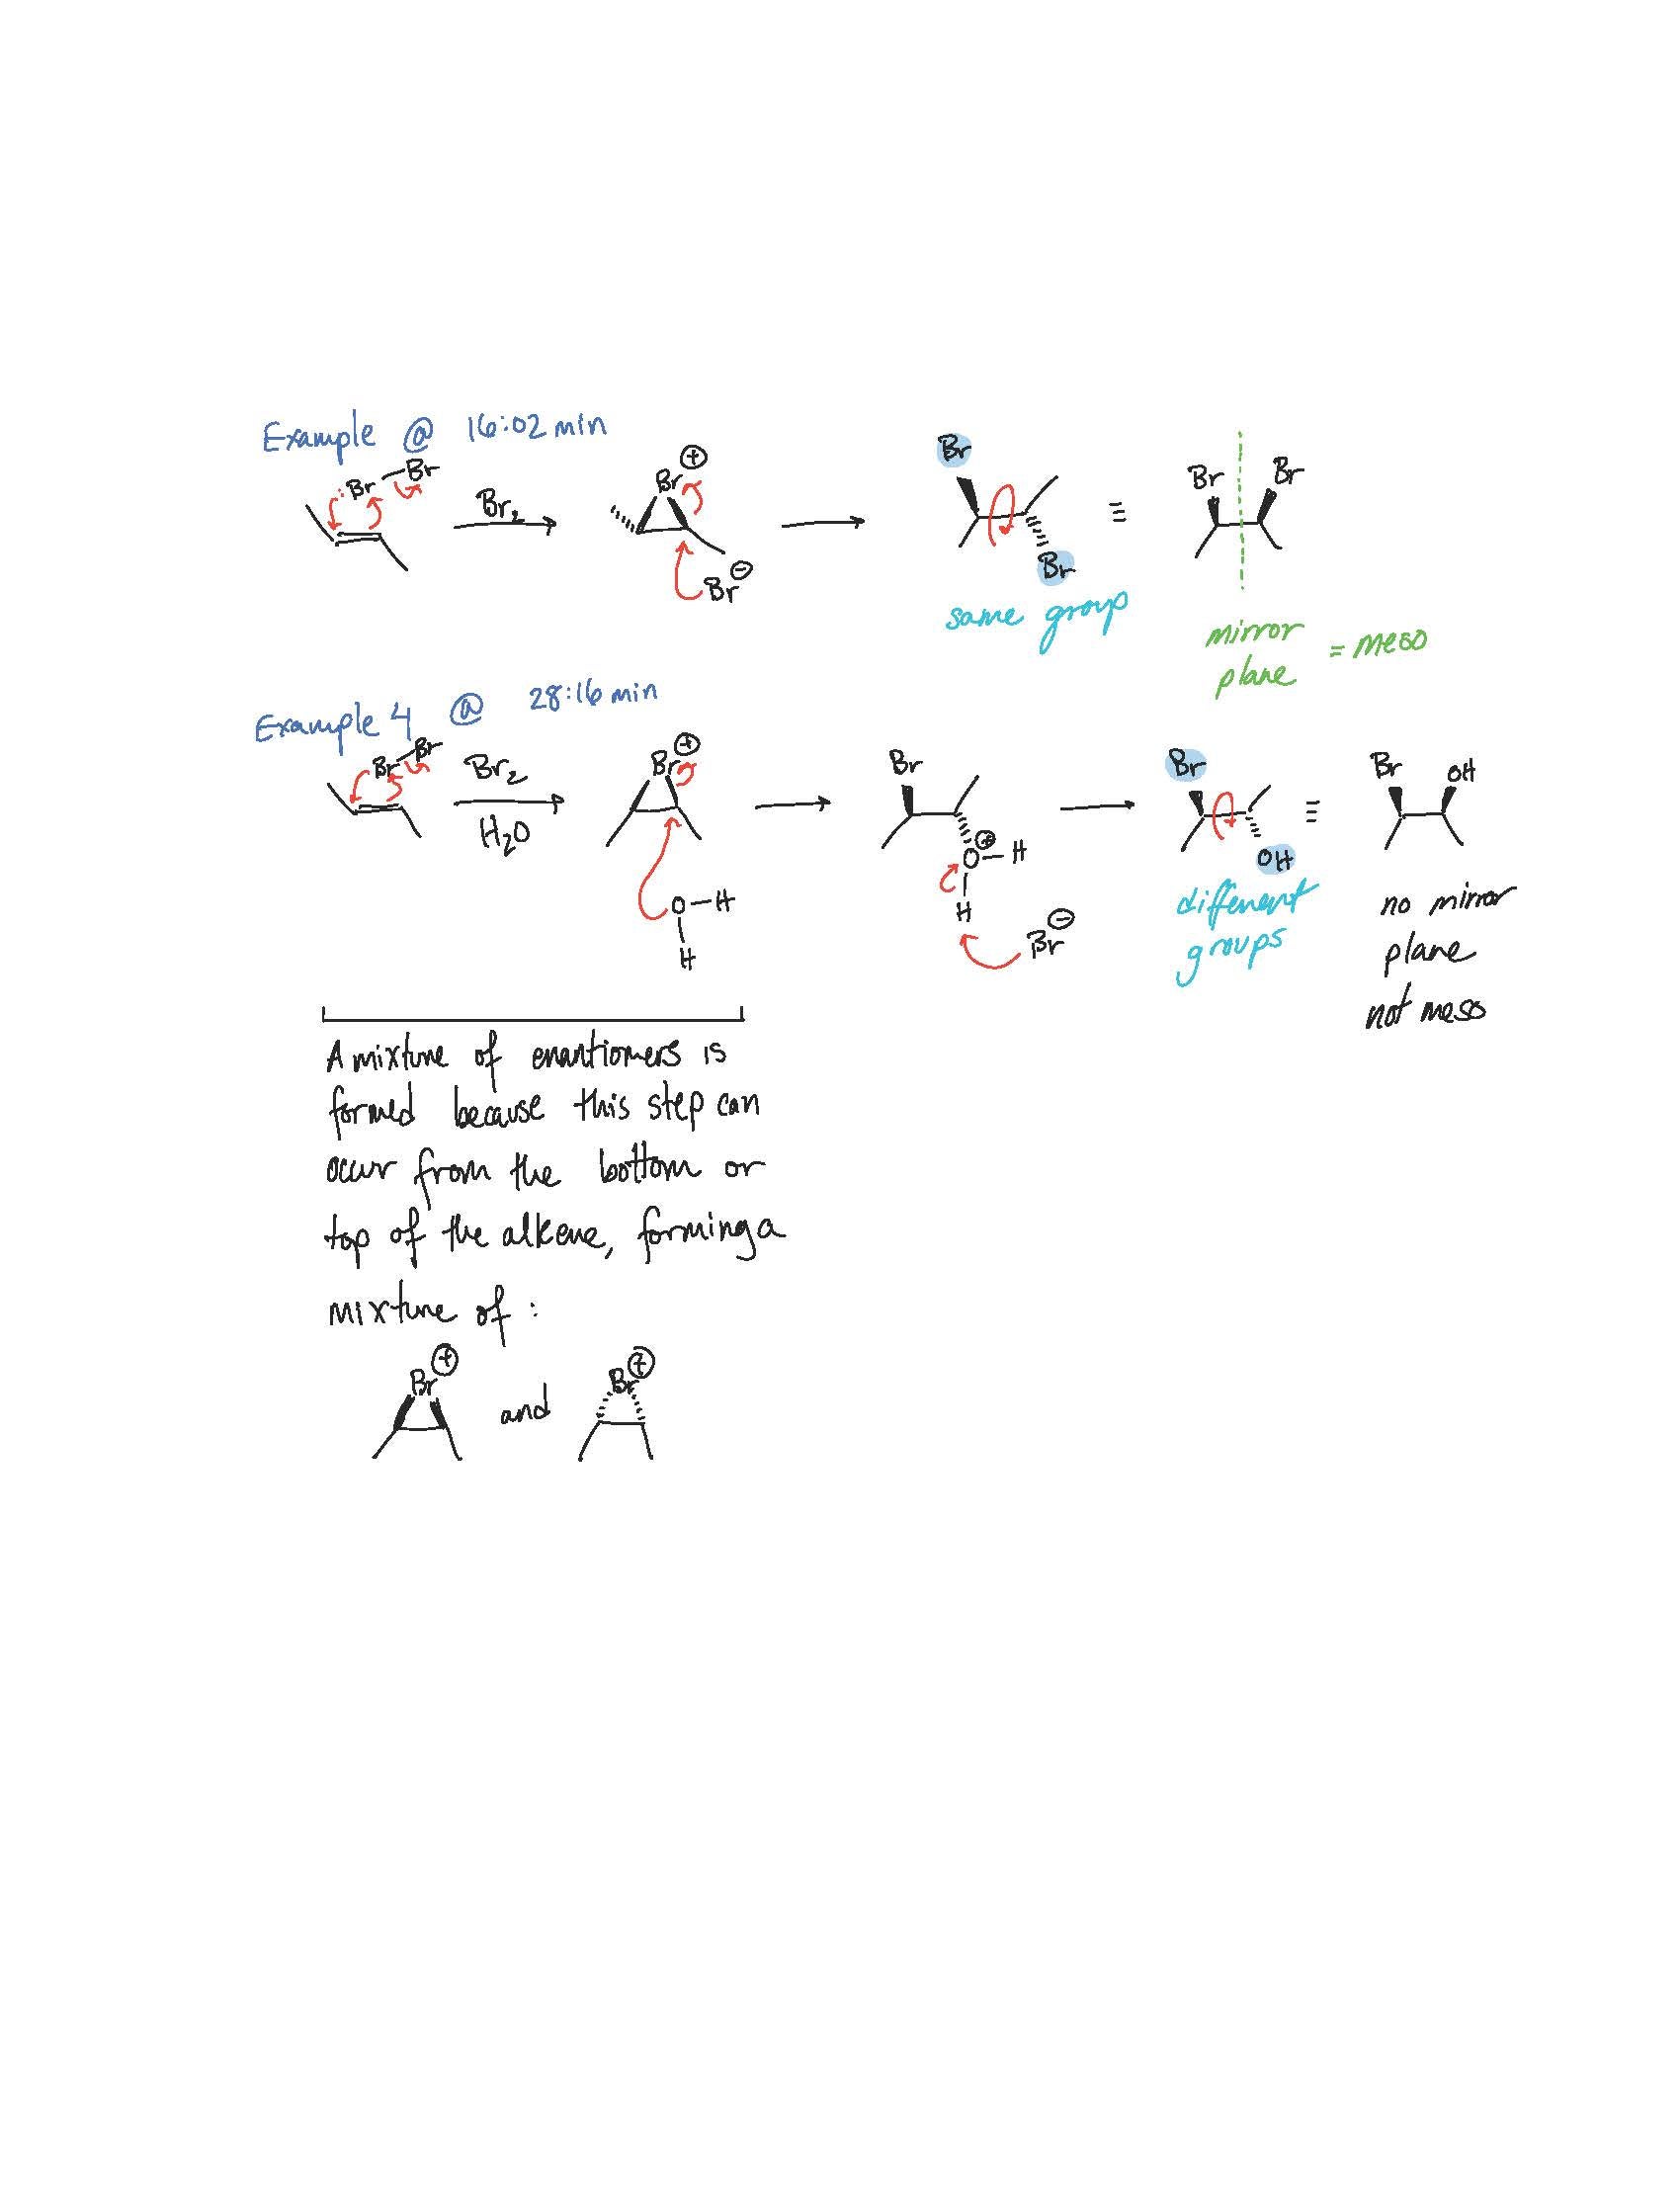 Example @ 16:02 min
:Br Br
Br₂
Br ⊕
Br ⊖
Br
Br
≡
Br Br
same group
mirror plane = meso
Example 4 @ 28:16 min
Br Br
Br₂
H₂O
Br ⊕
O H
H
Br
O ⊕ H
H
Br ⊖
Br
OH
≡
Br OH
different
groups
no mirror
plane
not meso
A mixture of enantiomers is
formed because this step can
occur from the bottom or
top of the alkene, forming a
mixture of :
Br ⊕ and Br ⊕